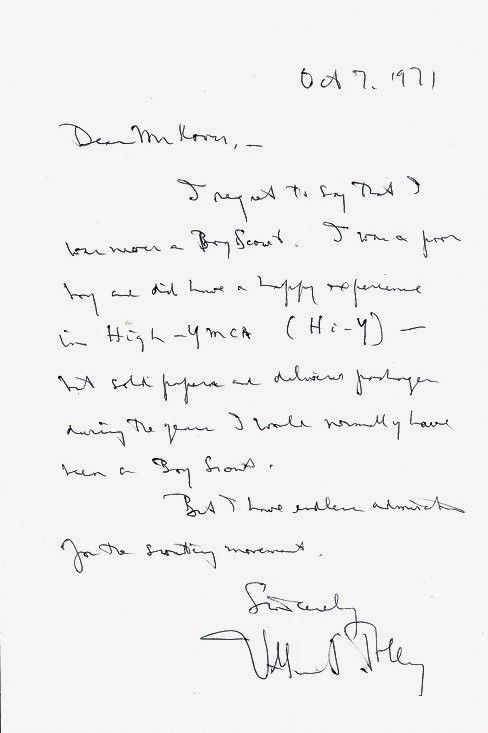 Oct 7. 1971
Dear Mr Korn, —
I regret to say that I
was never a Boy Scout. I was a poor
boy and did have a happy experience
in High-YMCA (Hi-Y) —
but sold papers and delivered packages
during the years I would normally have
been a Boy Scout.
But I have endless admiration
for the scouting movement.
Sincerely